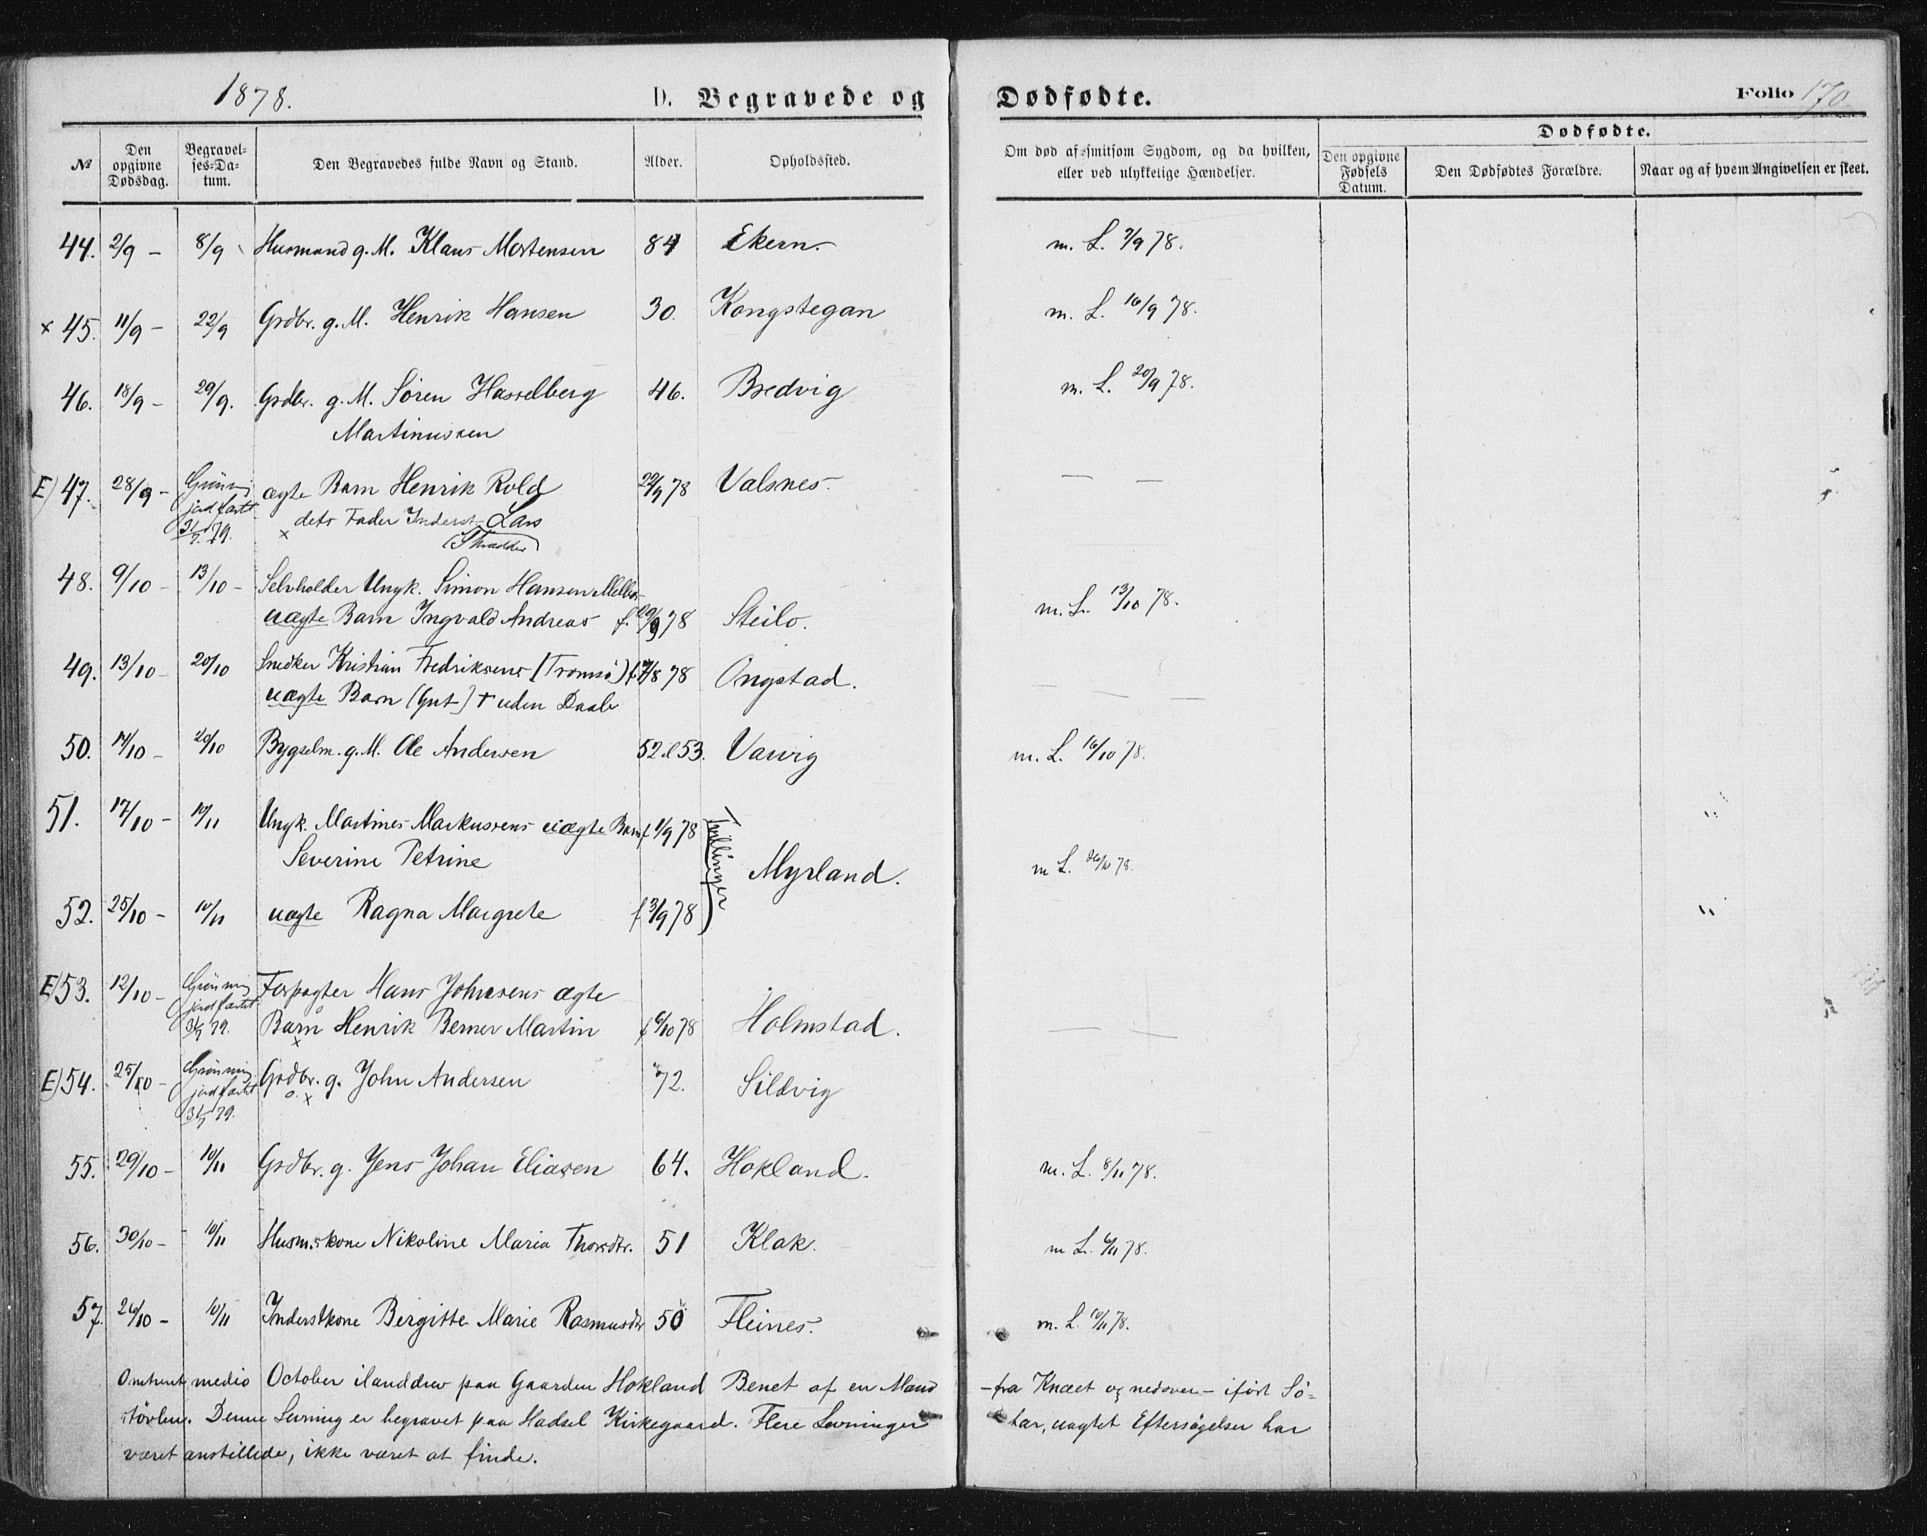 1878.
D. Begravede og Dødfødte.
Folio 170
№ Den opgivne Dødsdag. Begravelses-Datum. Den Begravedes fulde Navn og Stand. Alder. Opholdssted. Om død af smitsom Sygdom, og da hvilken, eller ved ulykkelige Hændelser. Dødfødte. Den opgivne Fødsels Datum. Den Dødfødtes Forældre. Naar og af hvem Angivelsen er skeet.
44. 2/9 – 8/9 Husmand g. M. Klaus Mortensen 84 Ekern. m. L. 7/9 78.
× 45. 11/9 – 22/9 Grdbr. g. M. Henrik Hansen 30. Kongstegan m. L. 16/9 78.
46. 18/9 – 29/9. Grdbr. g. M. Søren Hasselberg 46. Bredvig m. L. 20/9 78.
Martinussen
E) 47. 28/9 – Grønning ægte Barn Henrik Rold 22/9 78 Valsnes. — —
jordfæstet dets Fader Inderst Lars
31/7 79. ×
48. 9/10 – 13/10 – Selvholder Ungk. Simon Hansen
uægte Barn Ingvald Andreas f. 20/9 78 Steilo. m. L. 13/10 78.
49. 13/10 – 20/10 Snedker Kristian Fredriksens (Tromsø) f 7/8 78 Ongstad. — — —
uægte Barn (Gut) + uden Daab
50. 14/10 – 20/10 Bygselm. g. M. Ole Andersen 52 el 53. Varvig m. L. 16/10 78.
51. 17/10 – 10/11 Ungk. Martines Markussens uægte Barn f 1/9 78
Severine Petrine Tvillinger Myrland. m L. 26/10 78.
52. 25/10 – 10/11 uægte Ragna Margrete f 3/9 78
E) 53. 12/10 – Grønning Forpagter Hans Johnsens ægte
jordfæstet Barn Henrik Berner Martin f 6/10 78 Holmstad. — —
31/7 79. ×
E) 54. 25/10 – Grønning Grdbr. g. John Andersen 72. Sildvig
jordfæstet ×
31/7 79.
55. 29/10 – 10/11 Grdbr. g. Jens Johan Eliasen 64. Hokland. m. L. 8/11 78.
56. 30/10 – 10/11 Husm.skone Nikoline Maria Thorsdtr. 51 Klak. m L. 6/11 78.
57. 26/10 – 10/11 Inderstkone Bergitte Marie Rasmusdtr 50 Fleines. m. L. 10/11 78.
Omtrent medio October ilanddrev paa Gaarden Hokland Benet af en Mand – fra Knæet og nedover – iført Sø-
støvlen. Denne Levning er begravet paa Hadsel Kirkegaard. Flere Levninger har, uagtet Eftersøgelser har
været anstillede, ikke været at finde.